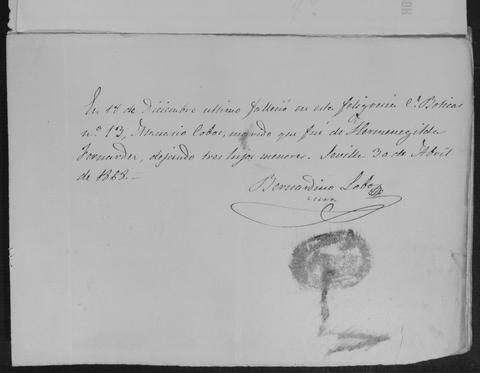 En 18 de Diciembre ultimo falleció en esta feligresia C. Boticas
n.º 13, Macario Cobos, marido que fué de Hermenegilda
Fernandez, dejando tres hijos menores. Sevilla 30 de Abril
de 1868.
Bernardino Lobo
cura